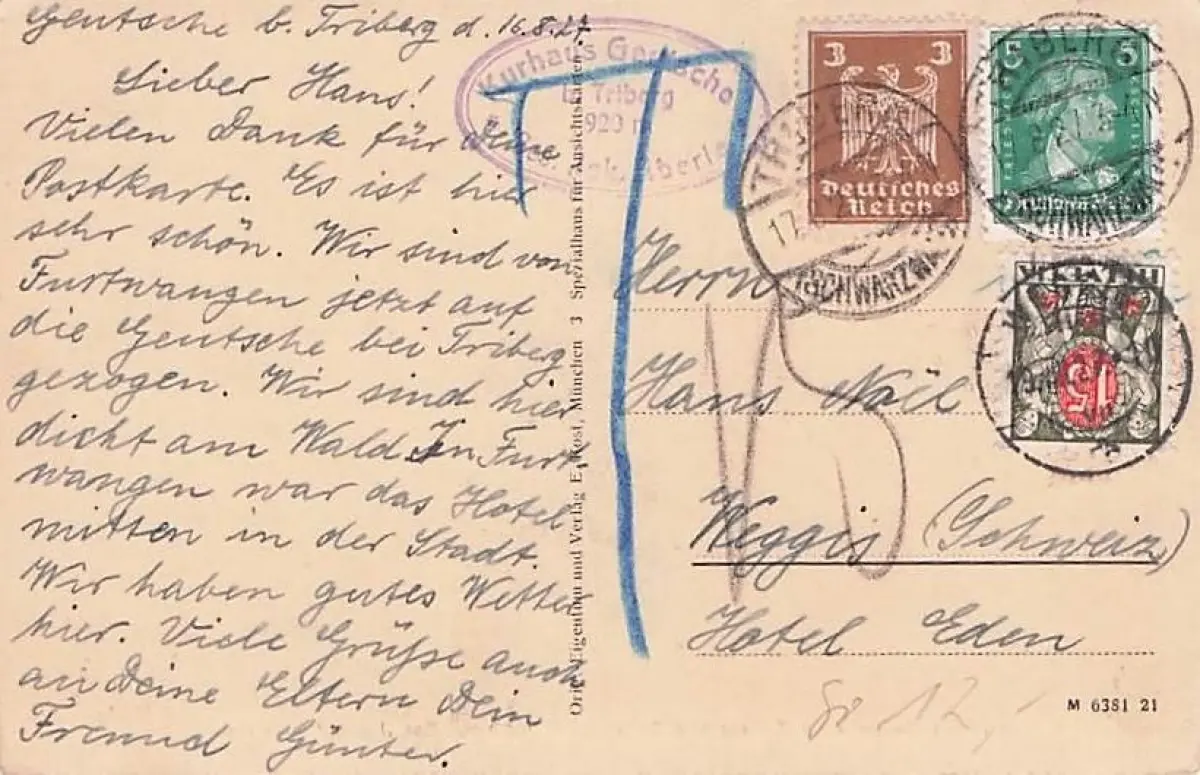 Geutsche b. Triberg d. 16.8.27.
Lieber Hans!
Vielen Dank für deine
Postkarte. Es ist hier
sehr schön. Wir sind von
Furtwangen jetzt auf
die Geutsche bei Triberg
gezogen. Wir sind hier
dicht am Wald. In Furt
wangen war das Hotel
mitten in der Stadt.
Wir haben gutes Wetter
hier. Viele Grüße auch
an Deine Eltern Dein
Freund Günter.
Kurhaus Geutsche
b. Triberg
Orig. Eigentum und Verlag E. Rost, München 3 Spezialhaus für Ansichtskarten.
T
3 3
Deutsches
Reich
5 5
Deutsches Reich
TRIBERG
17.
(SCHWARZWA
TRIBERG
(SCHWARZWA
HELVETIA
15
15
Herrn
Hans Noël
Weggis (Schweiz)
Hotel Eden
12,
M 6381 21